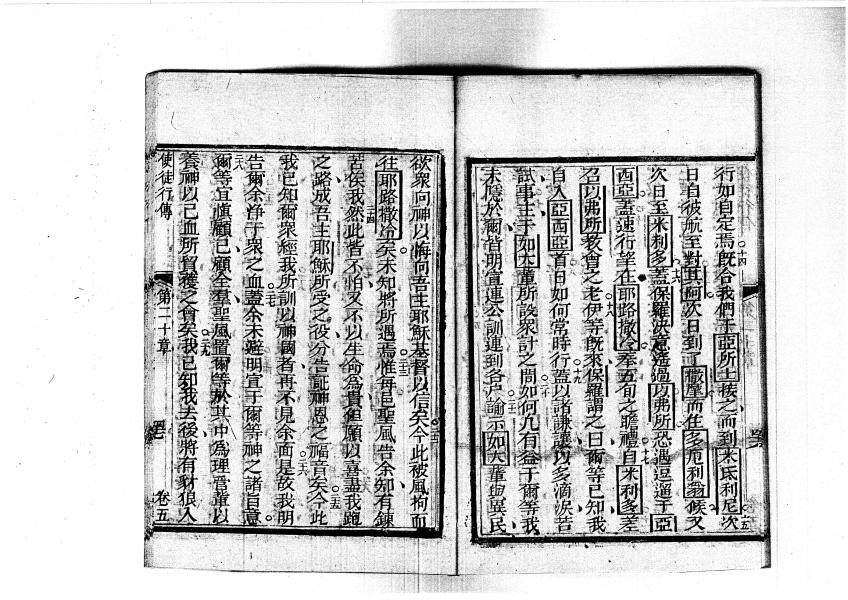 行如自定焉十四既合我們于亞所土接之而到米氐利尼十五次
日自彼航至對其阿次日到了撒摩而住多厄利翁候又
次日至米利多十六蓋保羅決意透過以弗所恐遇逗遛于亞
西亞蓋速行望在耶路撒冷奉五旬之瞻禮十七自米利多差
召以弗所教會之老伊等十八既來保羅謂之曰爾等已知我
自入亞西亞首日如何常時行十九蓋以諸謙讓以多滴淚苦
試事主于如大輩所設眾計之間二十如何凡有益于爾等我
未隱於爾皆明宣連公訓連到各戶二一諭示如大輩與異民
欲眾向神以悔向吾主耶穌基督以信矣二二今此被風拘而
往耶路撒冷矣未知將所遇焉二三惟每邑聖風告余知有鍊
苦俟我二四然此皆不怕又不以生命為貴但願以喜盡我跑
之路成吾主耶穌所受之役分告証神恩之福音矣二五今此
我已知爾眾經我所訓以神國者再不見余面二六是故我明
告爾余净于眾之血二七蓋余未避明宣于爾等神之諸旨意
二八爾等宜慎顧己顧全羣聖風置爾等於其中為理管輩以
養神以己血所貿獲之會矣二九我已知我去後將有豺狼入
使徒行傳
第二十章
卷五